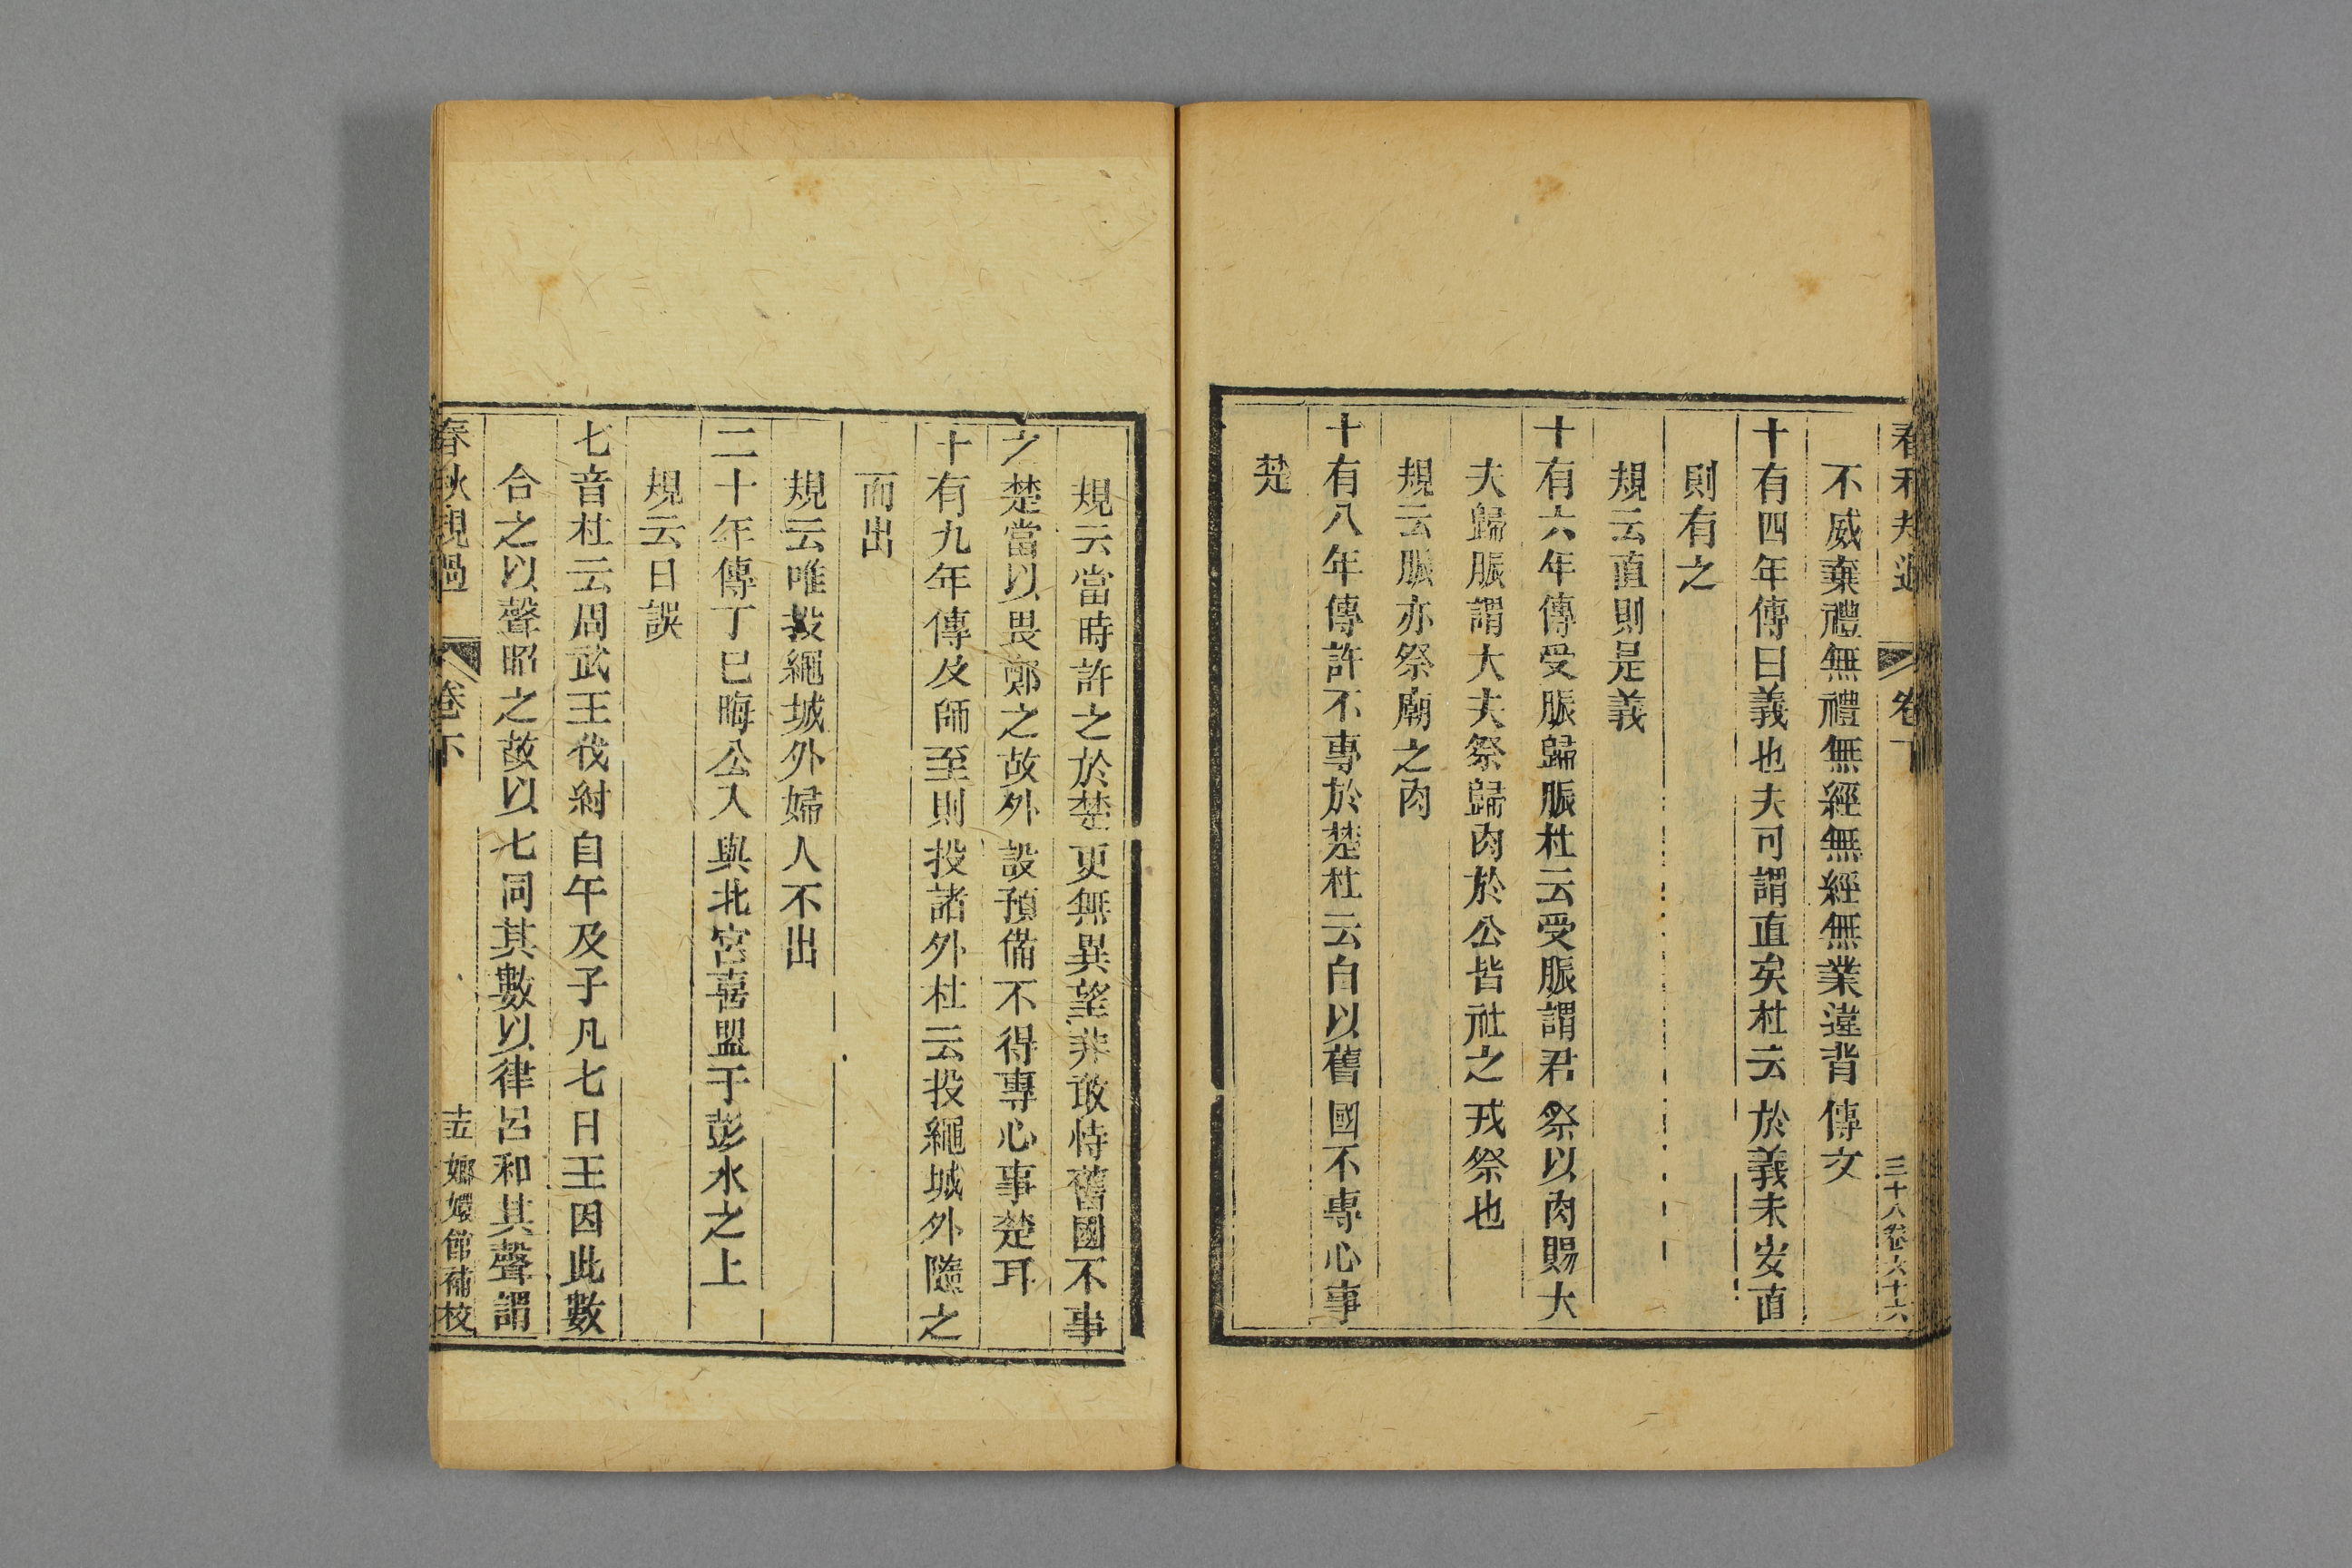 卷
三十八卷六十六
不威棄禮無禮無經無經無業違背傳文
十有四年傳曰義也夫可謂直矣杜云於義未安直
則有之
規云直則是義
十有六年傳受脤歸脤杜云受脤謂君祭以肉賜大
夫歸脤謂大夫祭歸肉於公皆社之戎祭也
規云脤亦祭廟之肉
十有八年傳許不專於楚杜云自以舊國不專心事
楚
規云當時許之於楚更無異望非敢恃舊國不事
之楚當以畏鄭之故外設預備不得專心事楚耳
十有九年傳及師至則投諸外杜云投繩城外隨之
而出
規云唯投繩城外婦人不出
二十年傳丁巳晦公入與北宮喜盟于彭水之上
規云日誤
七音杜云周武王伐紂自午及子凡七日王因此數
合之以聲昭之故以七同其數以律呂和其聲謂
春秋規過
卷下
十五
嫏嬛館補校